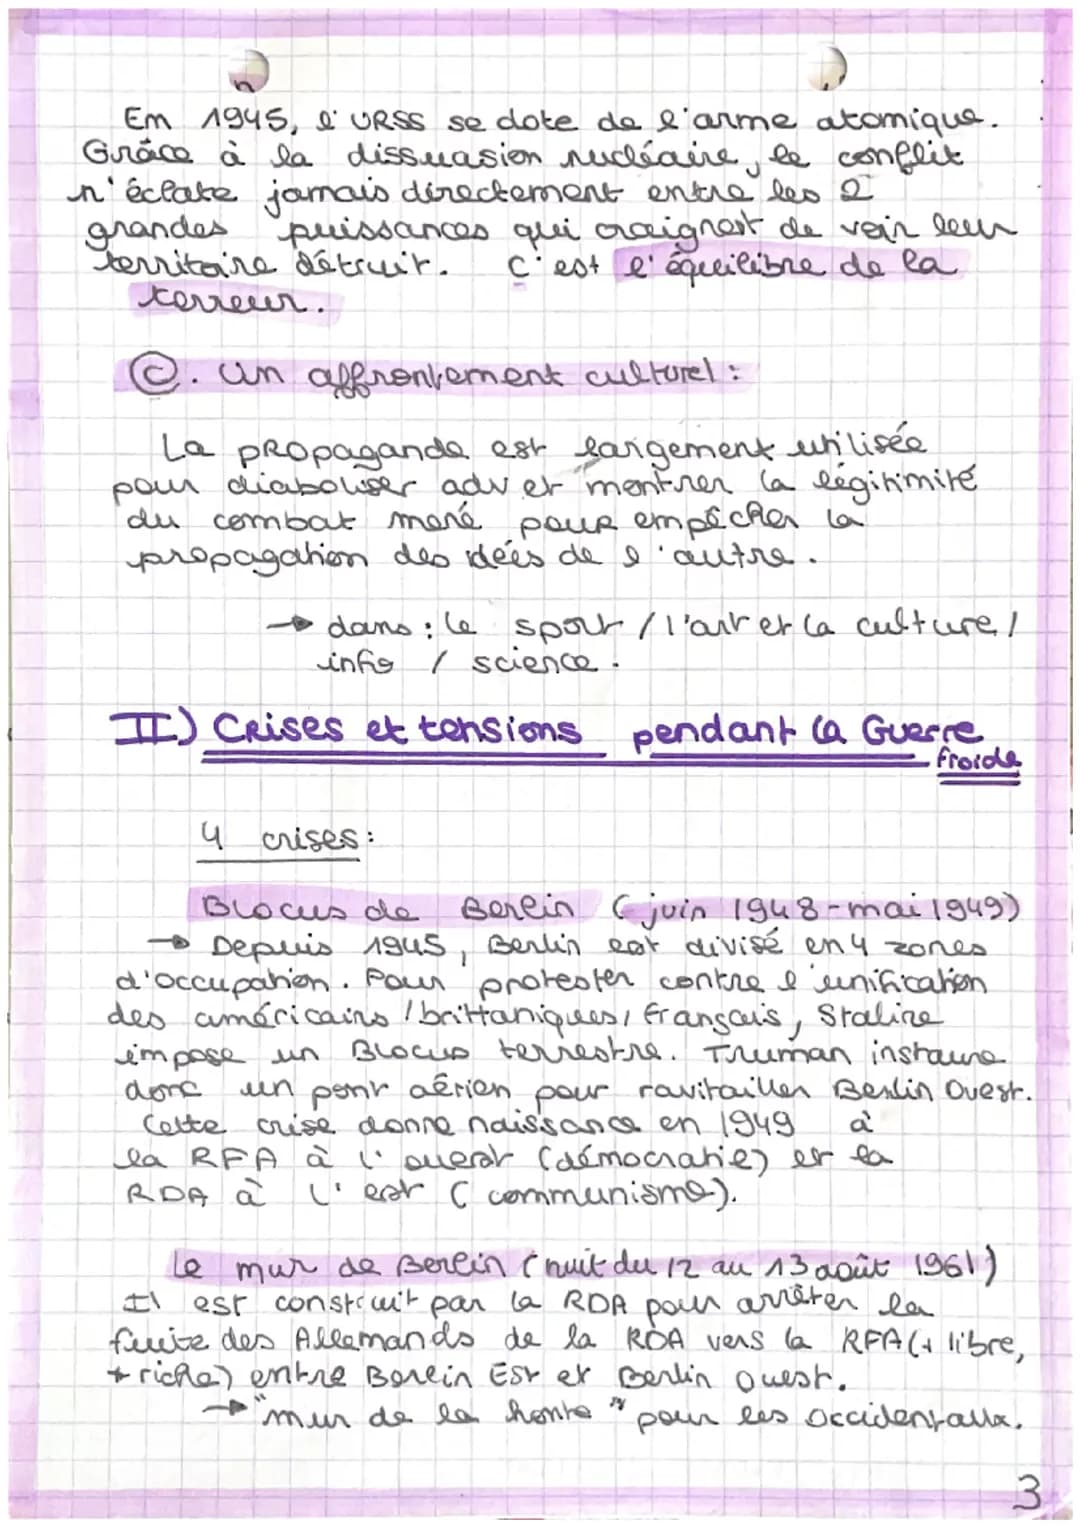 En 1945, l'URSS se dote de l'arme atomique.
Grâce à la dissuasion nucléaire, le conflit
n'éclate jamais directement entre les 2
grandes puissances qui craignent de voir leur
territoire détruit. C'est l'équilibre de la
terreur.
C. Un affrontement culturel :
La propagande est largement utilisée
pour diaboliser adv et montrer la légitimité
du combat mené pour empêcher la
propagation des idées de l'autre.
→ dans : le sport / l'art et la culture /
info / science.
II) Crises et tensions pendant la Guerre
froide
4 crises :
Blocus de Berlin (juin 1948-mai 1949)
→ Depuis 1945, Berlin est divisé en 4 zones
d'occupation. Pour protester contre l'unification
des américains / brittaniques / français, Staline
impose un Blocus terrestre. Truman instaure
donc un pont aérien pour ravitailler Berlin Ouest.
Cette crise donne naissance en 1949 à
la RFA à l'ouest (démocratie) et la
RDA à l'est (communisme).
Le mur de Berlin (nuit du 12 au 13 août 1961)
Il est construit par la RDA pour arrêter la
fuite des Allemands de la RDA vers la RFA (+ libre,
+ riche) entre Berlin Est et Berlin Ouest.
→ "mur de la honte" pour les occidentaux.
3